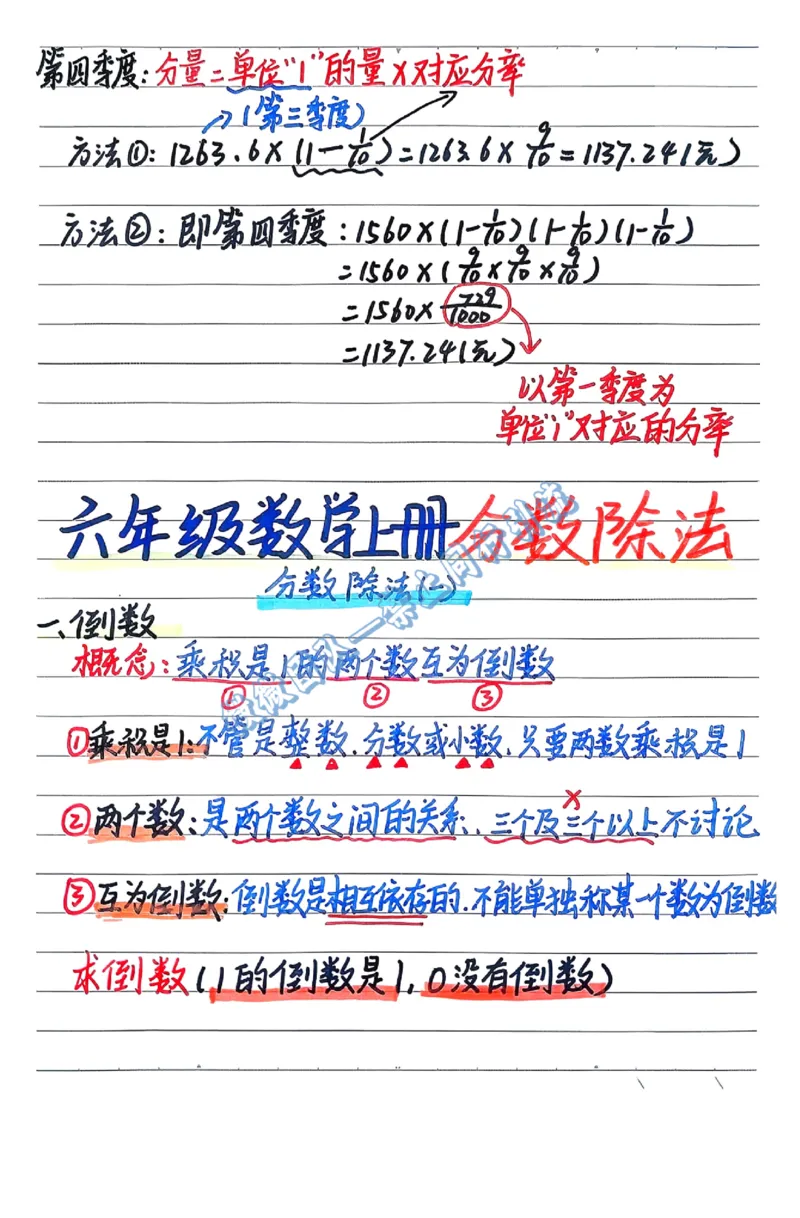 第四季度:分量=单位"1"的量×对应分率
(第三季度)
方法①:1263.6×(1-1/10)=1263.6×9/10=1137.24(元)
方法②:即第四季度:1560×(1-1/10)(1-1/10)(1-1/10)
=1560×(9/10×9/10×9/10)
=1560×729/1000
=1137.24(元)
以第一季度为
单位"1"对应的分率
六年级数学上册分数除法
分数除法(一)
一、倒数
概念:乘积是1的两个数互为倒数
① ② ③
①乘积是1:不管是整数、分数或小数,只要两数乘积是1
②两个数:是两个数之间的关系、三个及三个以上不讨论
③互为倒数:倒数是相互依存的,不能单独称某一个数为倒数
求倒数(1的倒数是1,0没有倒数)